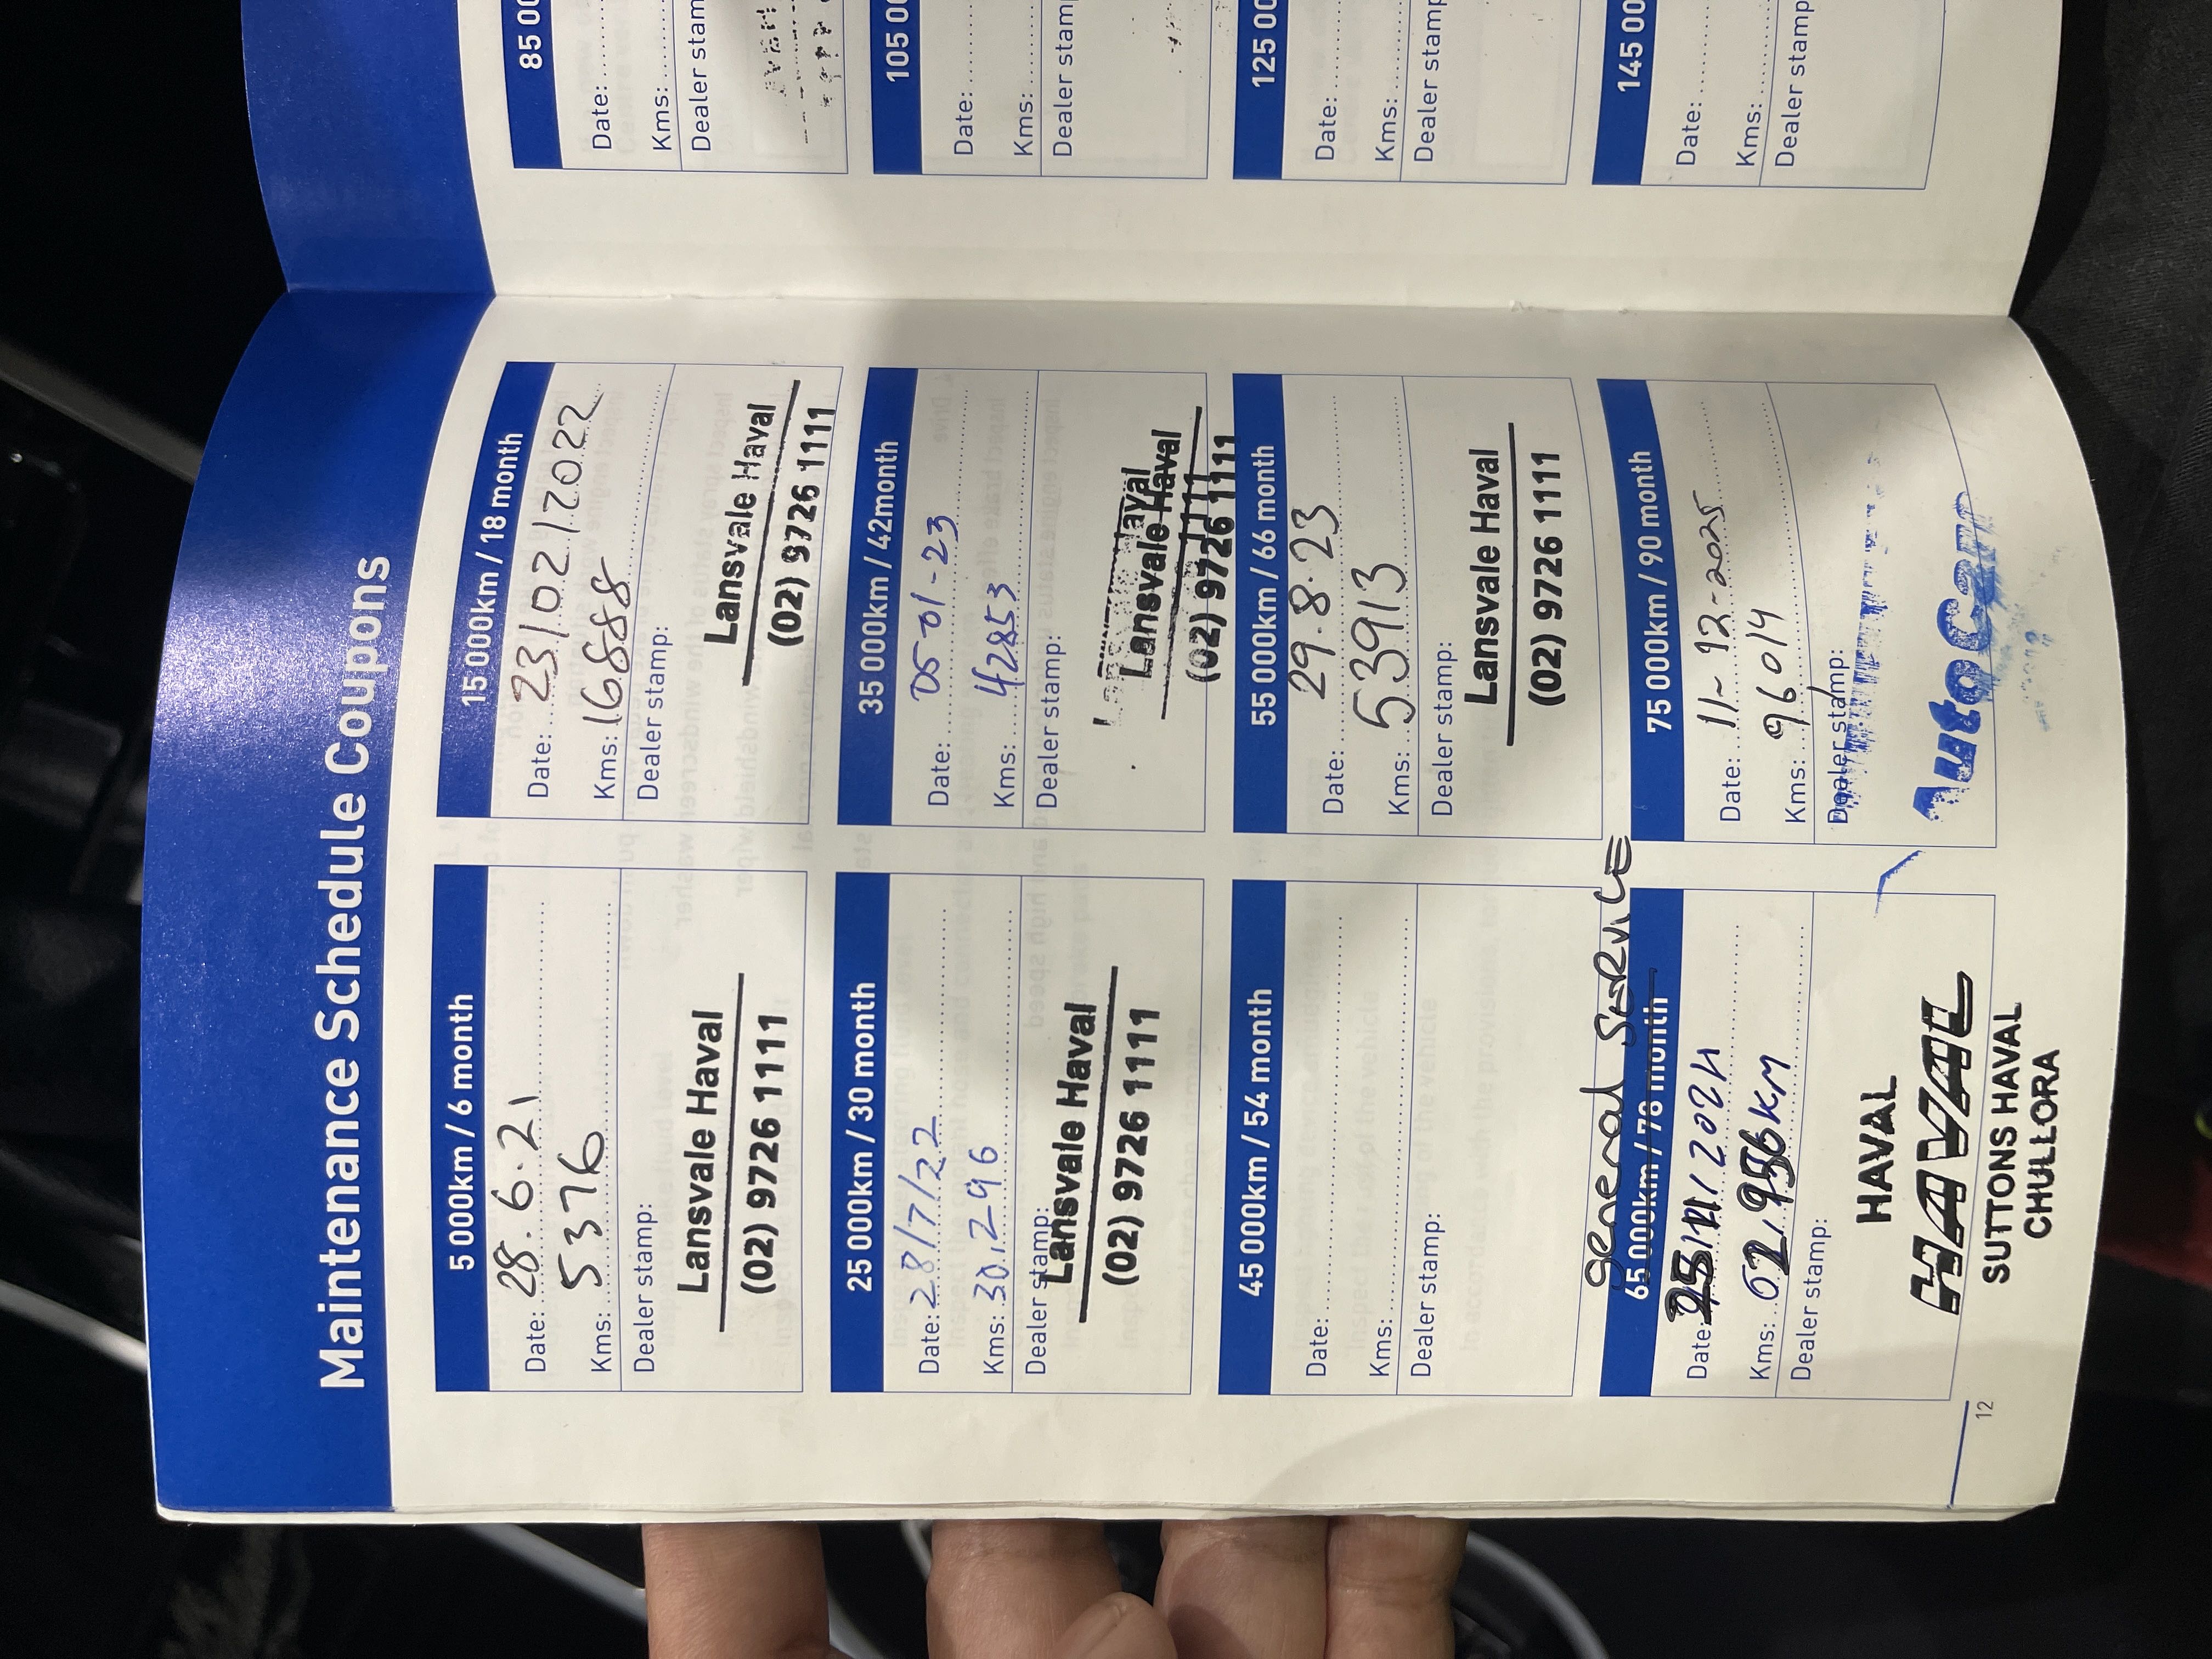 Maintenance Schedule Coupons
5 000km / 6 month
Date: 28.6.21
Kms: 5376
Dealer stamp:
Lansvale Haval
(02) 9726 1111
15 000km / 18 month
Date: 23/02/2022
Kms: 16888
Dealer stamp:
Lansvale Haval
(02) 9726 1111
25 000km / 30 month
Date: 28/7/22
Kms: 30,296
Dealer stamp:
Lansvale Haval
(02) 9726 1111
35 000km / 42month
Date: 05-01-23
Kms: 42853
Dealer stamp:
Lansvale Haval
Lansvale Haval
(02) 9726 1111
45 000km / 54 month
Date:
Kms:
Dealer stamp:
55 000km / 66 month
Date: 29.8.23
Kms: 53913
Dealer stamp:
Lansvale Haval
(02) 9726 1111
General SERVICE
65 000km / 78 month
Date: /2024
Kms: KM
Dealer stamp:
HAVAL
HAVAL
SUTTONS HAVAL
CHULLORA
75 000km / 90 month
Date: 11-12-2025
Kms: 96014
Dealer stamp:
AutoCare
12
85 00
Date:
Kms:
Dealer stam
105 00
Date:
Kms:
Dealer stamp
125 00
Date:
Kms:
Dealer stamp
145 00
Date:
Kms:
Dealer stamp